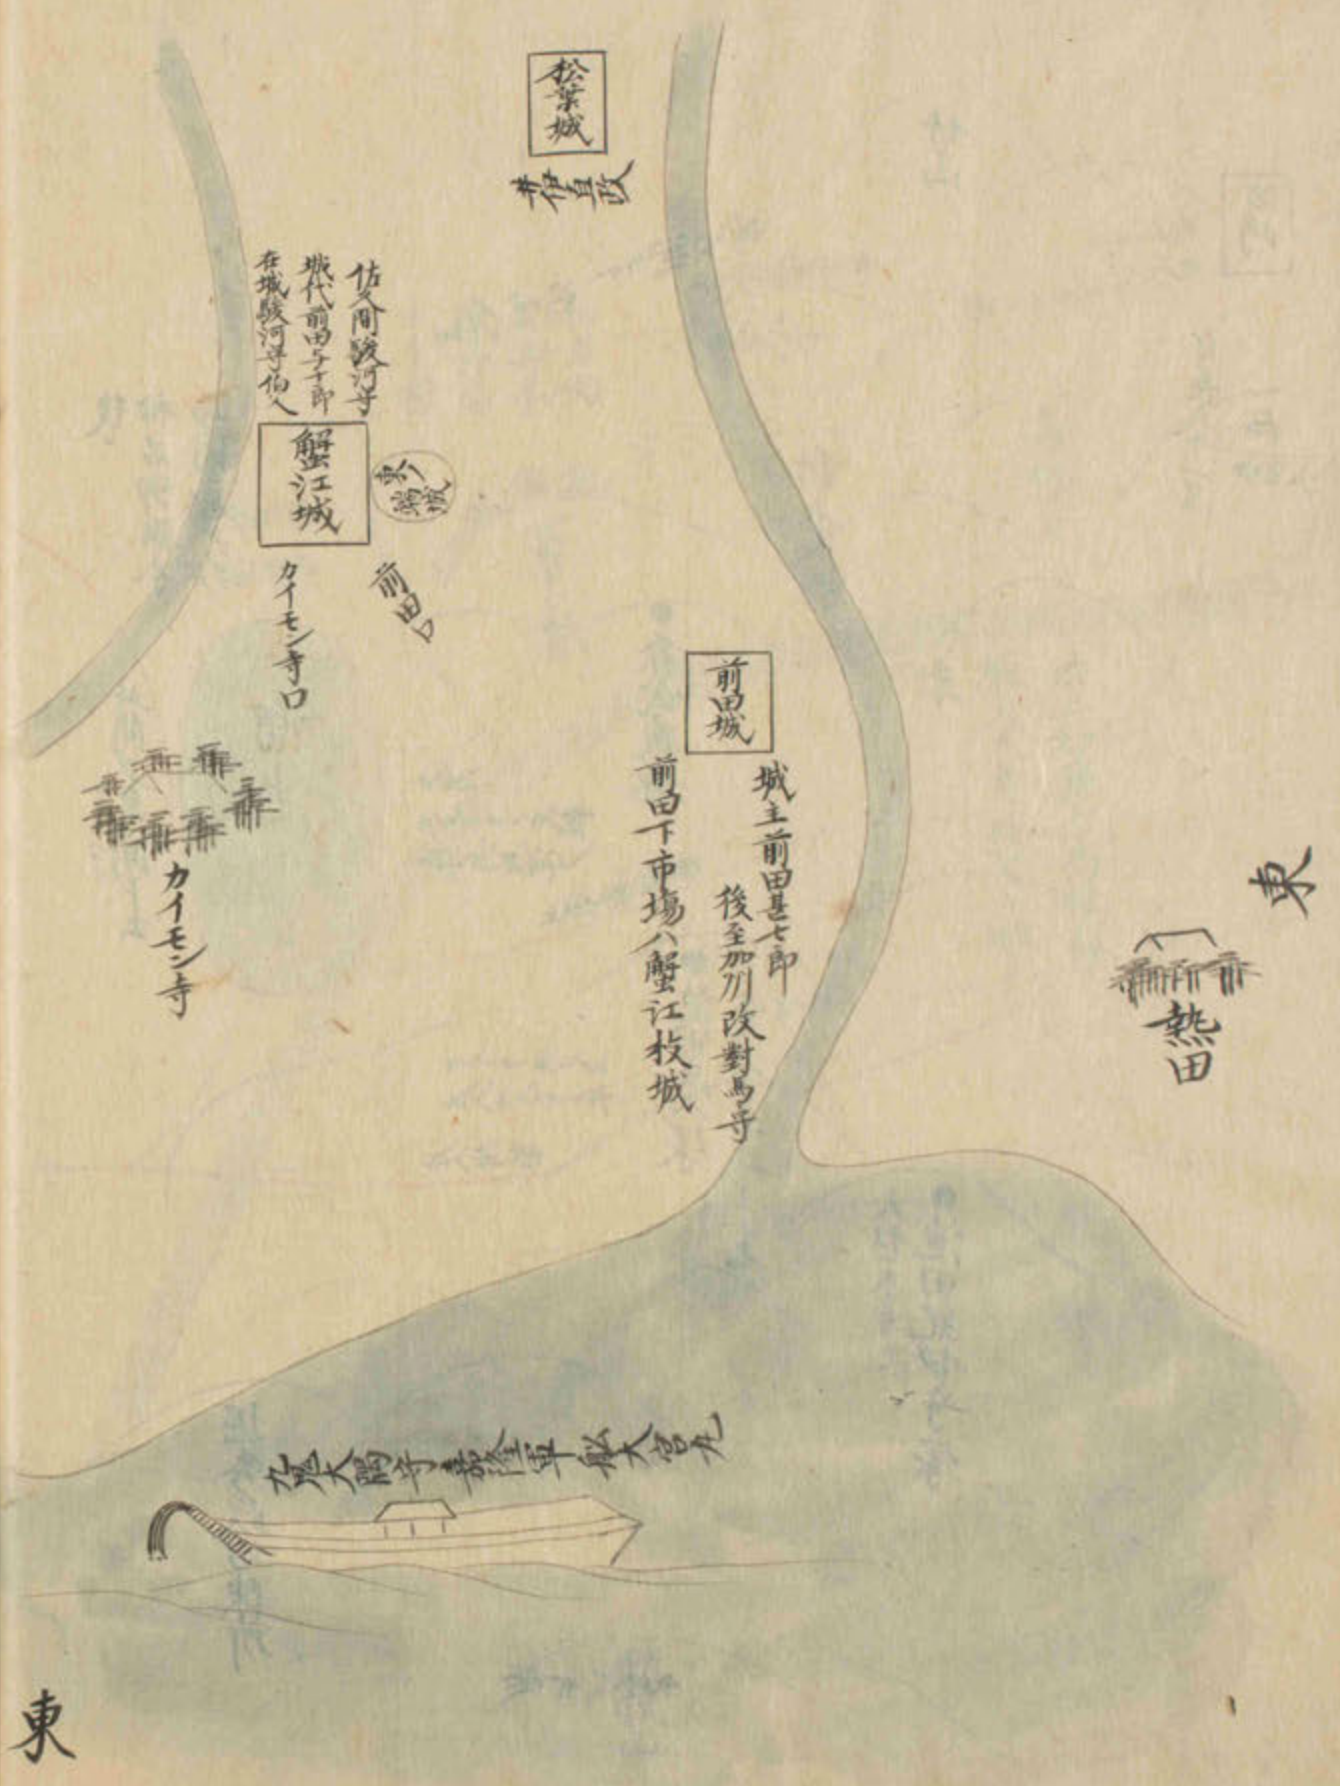 松葉城
井伊直政
佐久間駿河守
城代前田与十郎
在城駿河守伯人
蟹江城
前田口
カイモン寺口
カイモン寺
前田城
城主前田甚七郎
後至加州改對馬守
前田下市場八蟹江枝城
東
熱田
九鬼大隅守嘉隆軍舩大宮丸
東